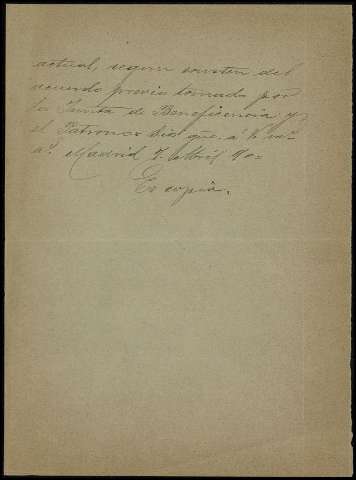 actual, segun consta en del
acuerdo previo tomado por
la Junta de Beneficencia y
el Patronco Dio que. á V. m.
a. Madrid 7. Abril 90=
Es copia.